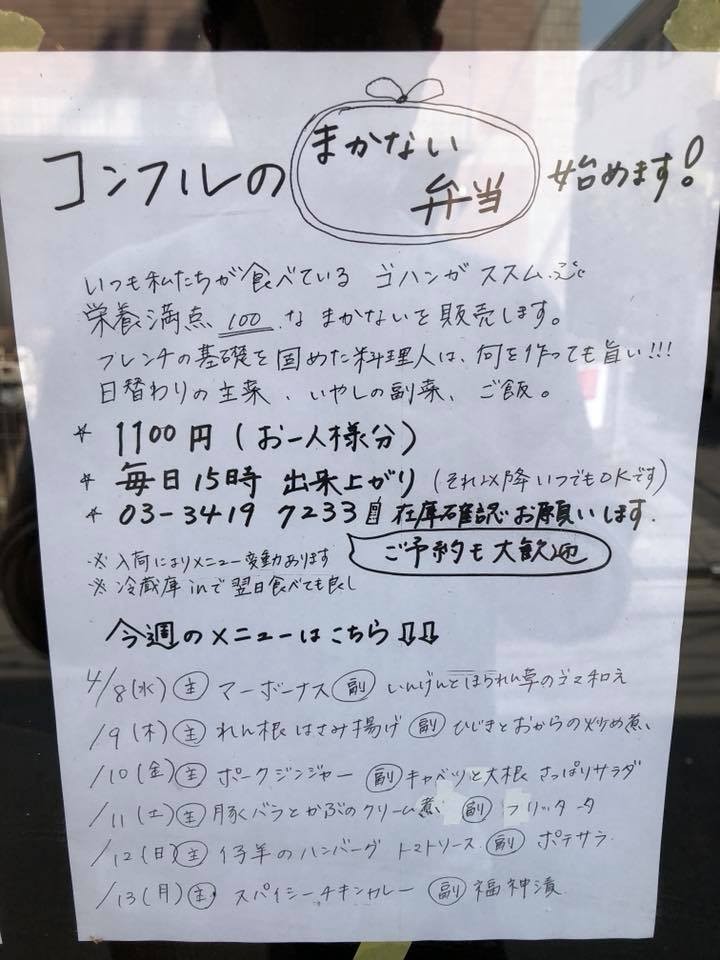 コンフルの まかない弁当 始めます!
いつも私たちが食べている ゴハンがススム
栄養満点 100 な まかないを販売します。
フレンチの基礎を固めた料理人は、何を作っても旨い!!!
日替わりの主菜、いやしの副菜、ご飯。
* 1100円(お一人様分)
* 毎日15時 出来上がり(それ以降いつでもOKです)
* 03-3419 7233 在庫確認お願いします.
ご予約も大歓迎
※ 入荷によりメニュー変動あります
※ 冷蔵庫inで翌日食べても良し
今週のメニューはこちら⇩⇩
4/8(水) 主 マーボーナス 副 いんげんとほうれん草のゴマ和え
/9(木) 主 れん根はさみ揚げ 副 ひじきとおからの炒め煮
/10(金) 主 ポークジンジャー 副 キャベツと大根 さっぱりサラダ
/11(土) 主 豚バラとかぶのクリーム煮 副 フリッタータ
/12(日) 主 仔羊のハンバーグ トマトソース 副 ポテサラ
/13(月) 主 スパイシーチキンカレー 副 福神漬